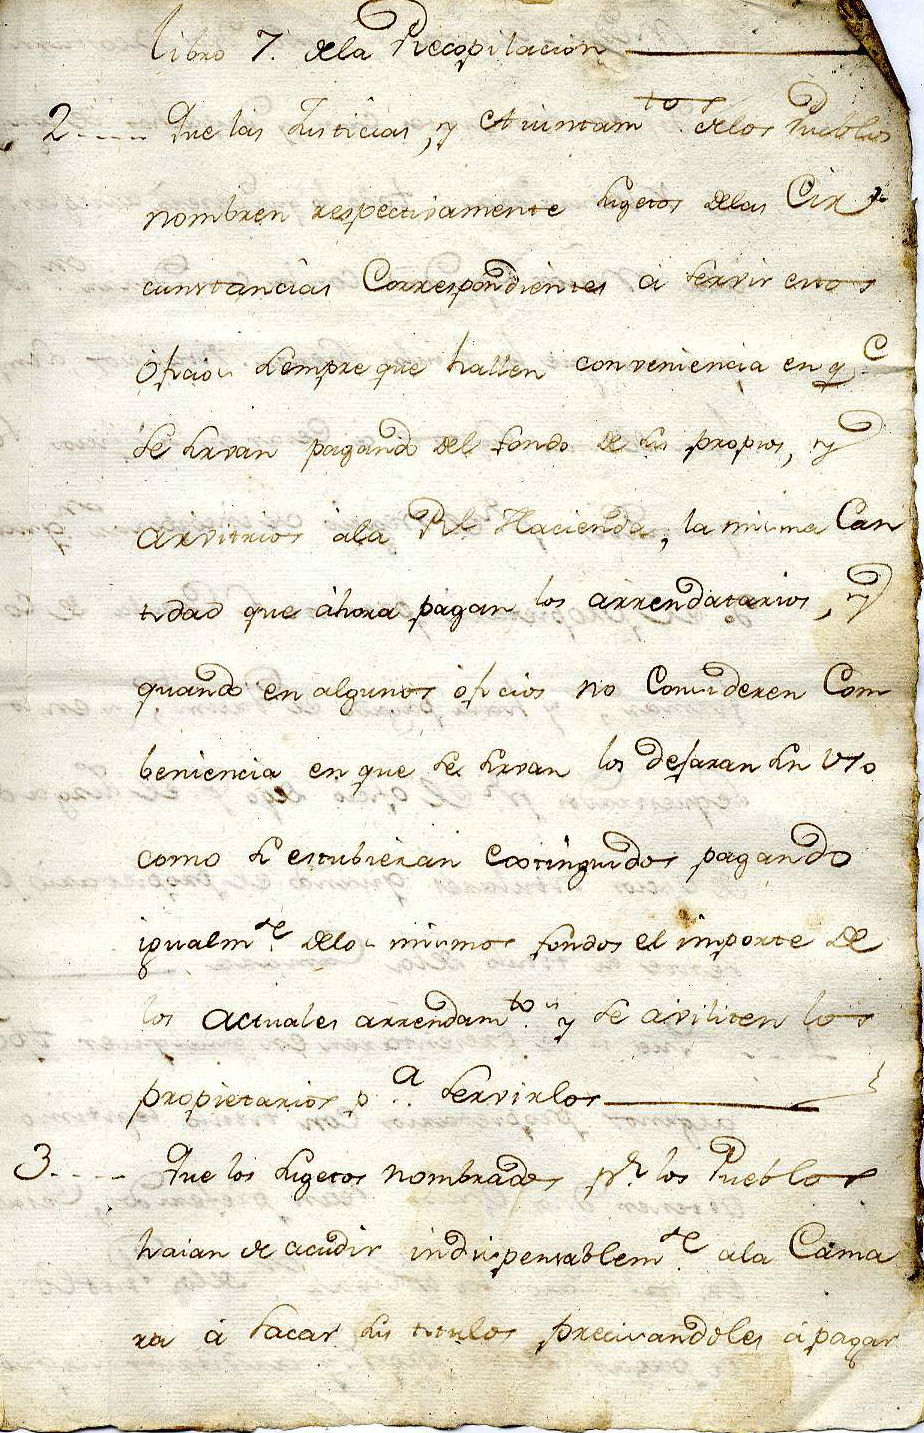 libro 7. dela Recopilacion
2.... Que las Justicias, y Aiuntam.tos delos Pueblos
nombren respectivamente sugetos delas Cir
cunstancias Correspondientes á servir estos
óficios siempre que hallen conveniencia en q.e
se sirvan pagando del fondo de sus propios, y
arvitrios ála Rl Hacienda, la misma Can
tidad que áhora pagan los arrendatarios, y
quando en algunos óficios no Consideren Com
beniencia en que se sirvan los dejaran sin uso
como si estubieran extinguidos pagando
igualm.te delos mismos fondos el importe de
los actuales arrendam.tos y se aviliten los
propietarios p.a servirlos
3.... Que los sugetos nombrados p.r los Pueblos
haian de acudir indispensablem.te ala Cáma
ra á sacar sus titulos precisandoles á pagar